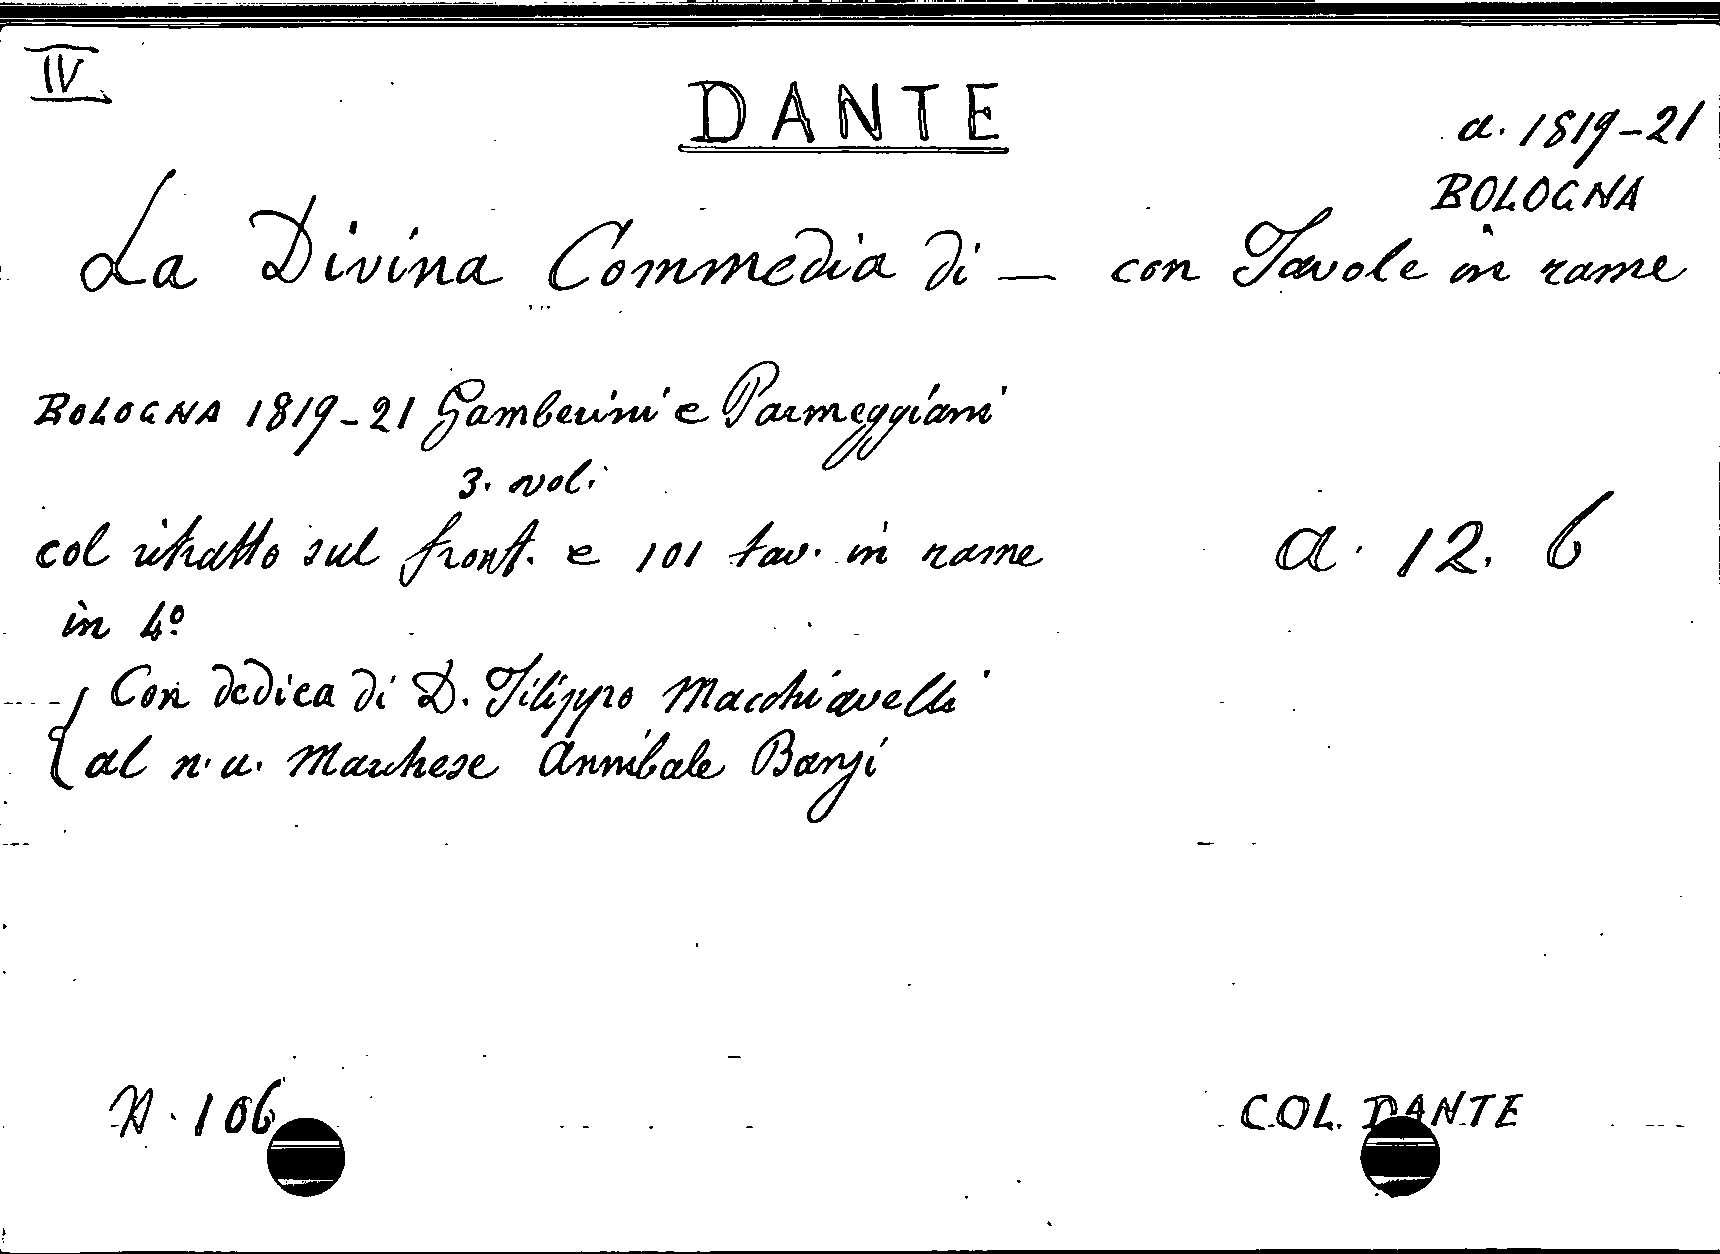 IV
DANTE
a. 1819-21
BOLOGNA
La Divina Commedia di — con Tavole in rame
BOLOGNA 1819-21 Gamberini e Parmeggiani
3. vol.
col ritratto sul front. e 101 tav. in rame
a. 12. 6
in 4º
Con dedica di D. Filippo Macchiavelli
al n. u. Marchese Annibale Banzi
N. 106
COL. DANTE